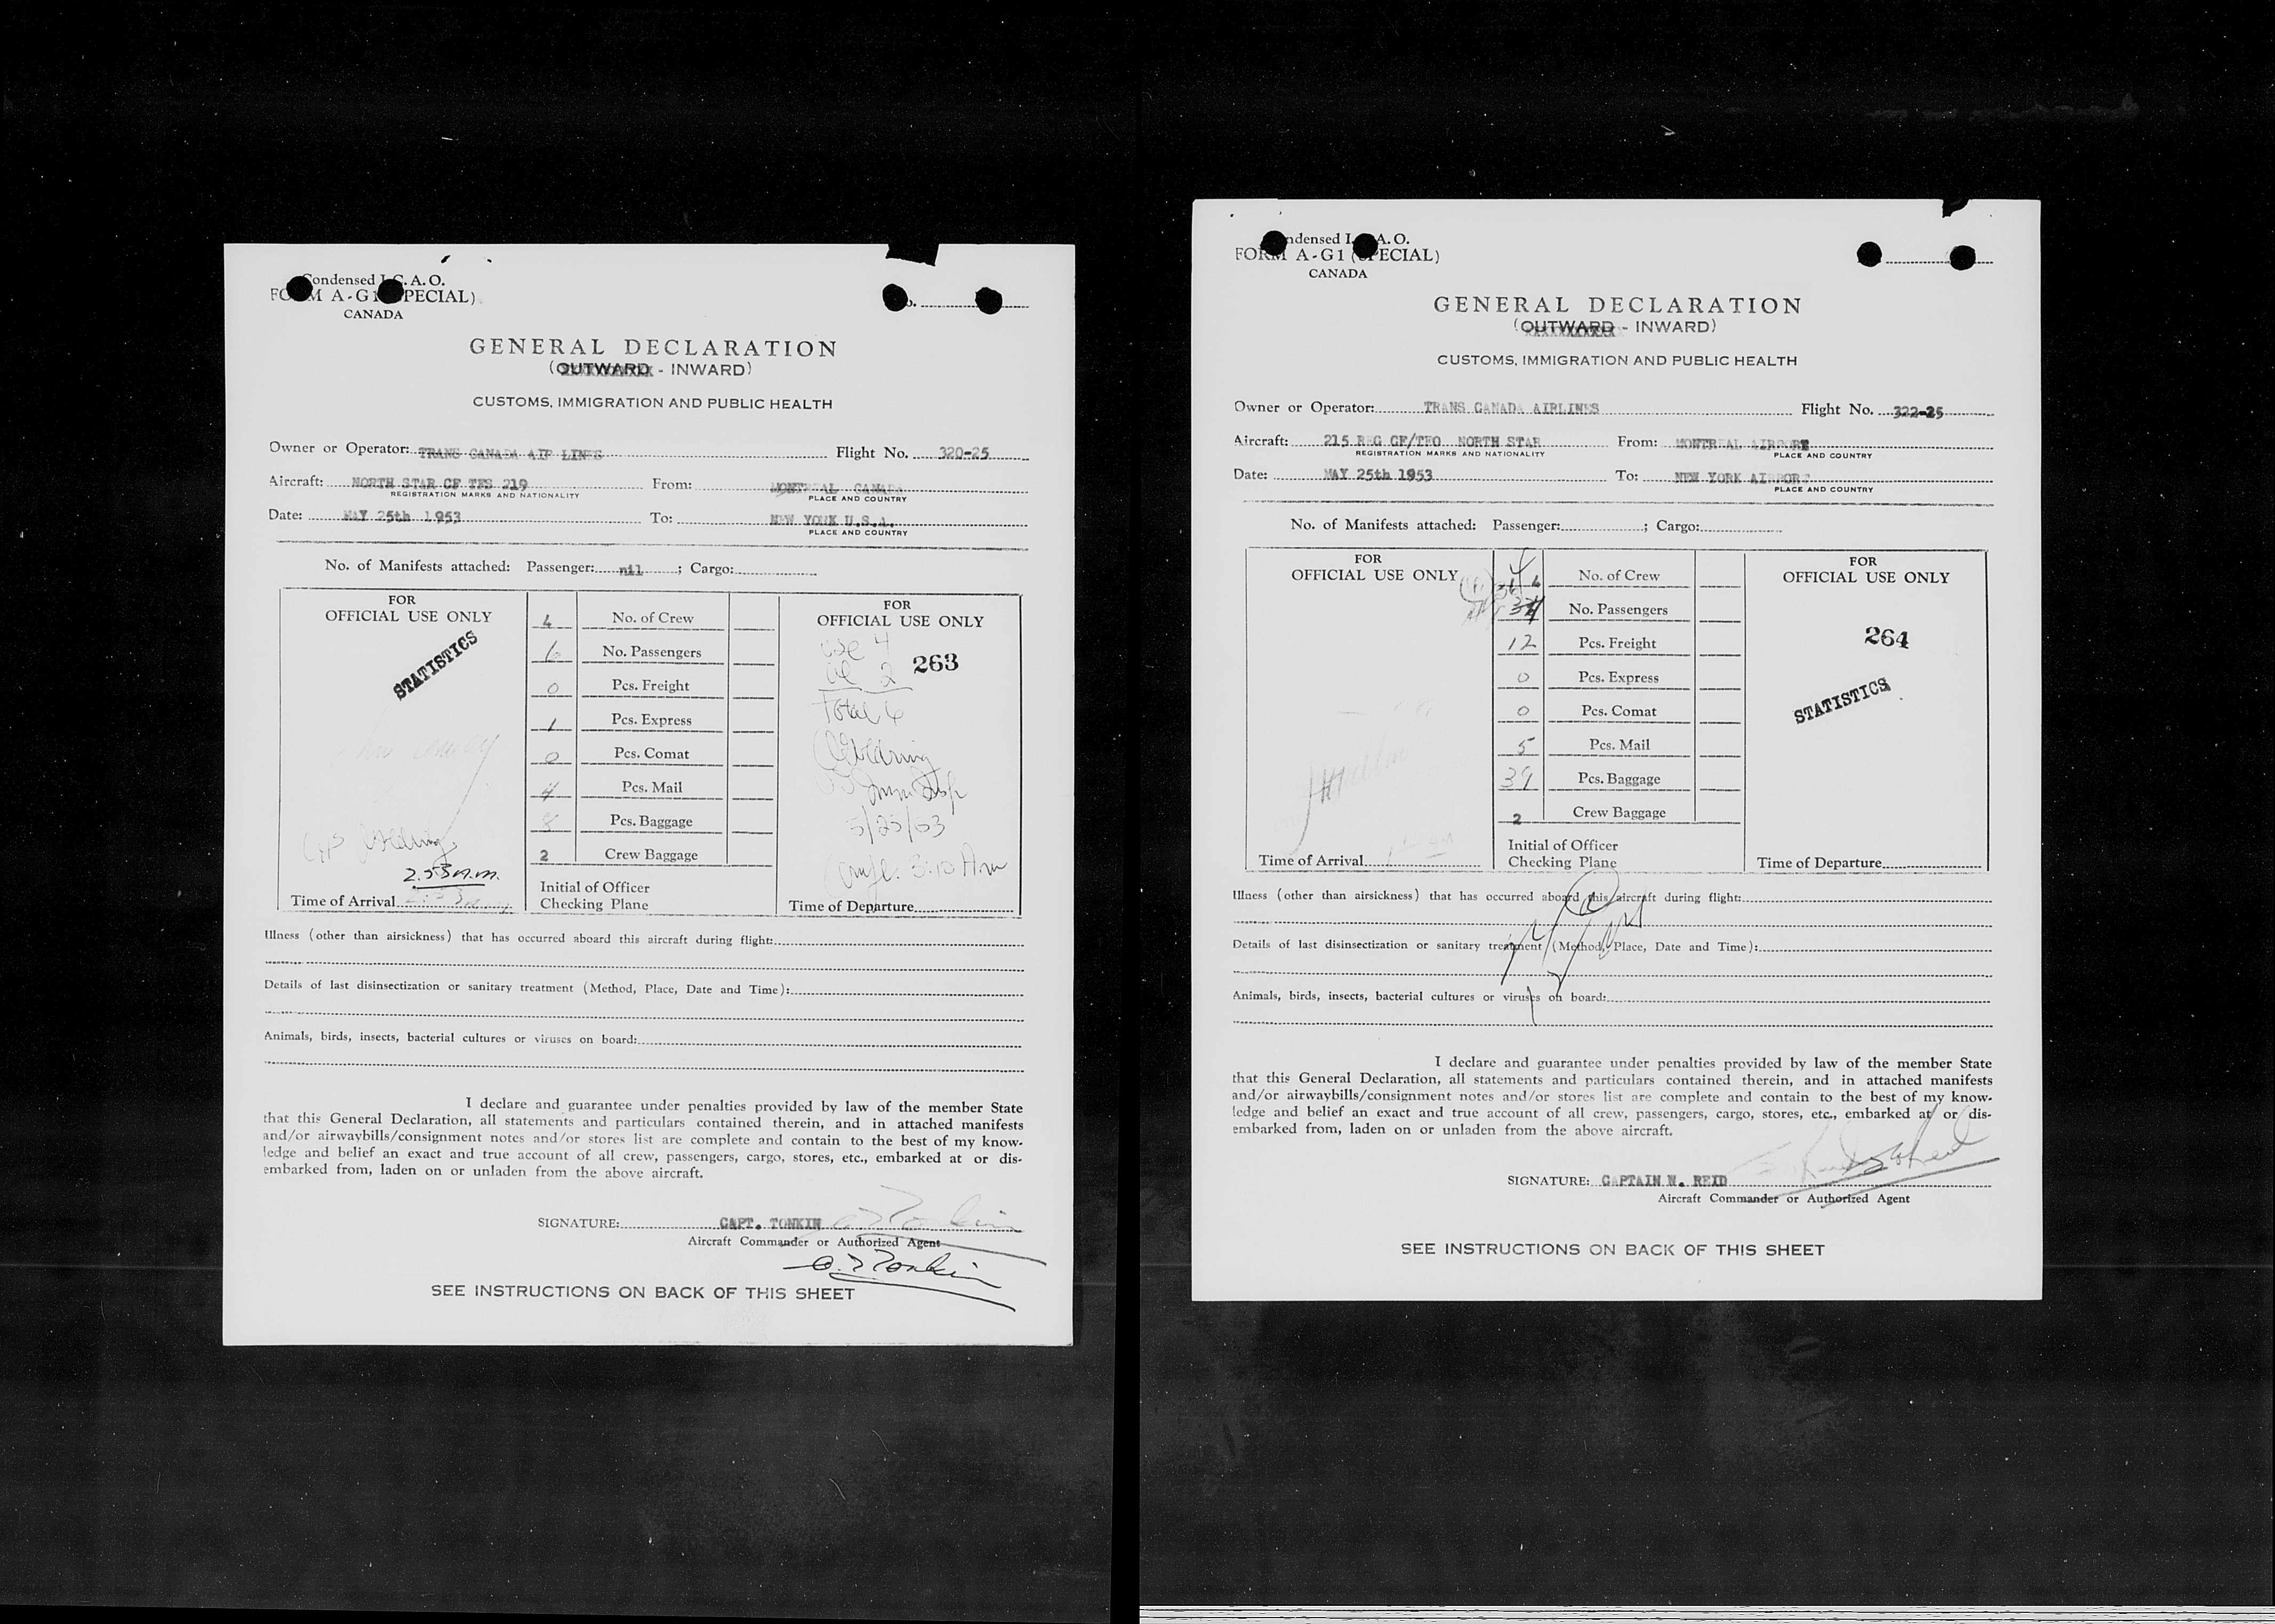 Condensed I.C.A.O.
FORM A-G1 (SPECIAL)
CANADA
GENERAL DECLARATION
(OUTWARD - INWARD)
CUSTOMS, IMMIGRATION AND PUBLIC HEALTH
Owner or Operator: TRANS CANADA AIR LINES Flight No. 320-25
Aircraft: NORTH STAR CF TFS 219 From: MONTREAL CANADA
REGISTRATION MARKS AND NATIONALITY PLACE AND COUNTRY
Date: MAY 25th 1953 To: NEW YORK U.S.A.
PLACE AND COUNTRY
No. of Manifests attached: Passenger: nil ; Cargo:
FOR
OFFICIAL USE ONLY
STATISTICS
2.53 A.M.
Time of Arrival
4 No. of Crew
6 No. Passengers
0 Pcs. Freight
1 Pcs. Express
0 Pcs. Comat
4 Pcs. Mail
8 Pcs. Baggage
2 Crew Baggage
Initial of Officer
Checking Plane
FOR
OFFICIAL USE ONLY
4
2 263
Total 6
5/25/53
3:10 Am
Time of Departure
Illness (other than airsickness) that has occurred aboard this aircraft during flight:
Details of last disinsectization or sanitary treatment (Method, Place, Date and Time):
Animals, birds, insects, bacterial cultures or viruses on board:
I declare and guarantee under penalties provided by law of the member State
that this General Declaration, all statements and particulars contained therein, and in attached manifests
and/or airwaybills/consignment notes and/or stores list are complete and contain to the best of my know-
ledge and belief an exact and true account of all crew, passengers, cargo, stores, etc., embarked at or dis-
embarked from, laden on or unladen from the above aircraft.
SIGNATURE: CAPT. TONKIN
Aircraft Commander or Authorized Agent
SEE INSTRUCTIONS ON BACK OF THIS SHEET
Condensed I.C.A.O.
FORM A-G1 (SPECIAL)
CANADA
GENERAL DECLARATION
(OUTWARD - INWARD)
CUSTOMS, IMMIGRATION AND PUBLIC HEALTH
Owner or Operator: TRANS CANADA AIRLINES Flight No. 322-25
Aircraft: 215 REG CF/TFO NORTH STAR From: MONTREAL AIRPORT
REGISTRATION MARKS AND NATIONALITY PLACE AND COUNTRY
Date: MAY 25th 1953 To: NEW YORK AIRPORT
PLACE AND COUNTRY
No. of Manifests attached: Passenger: ; Cargo:
FOR
OFFICIAL USE ONLY
Time of Arrival
4 No. of Crew
No. Passengers
12 Pcs. Freight
0 Pcs. Express
0 Pcs. Comat
5 Pcs. Mail
39 Pcs. Baggage
2 Crew Baggage
Initial of Officer
Checking Plane
FOR
OFFICIAL USE ONLY
264
STATISTICS
Time of Departure
Illness (other than airsickness) that has occurred aboard this aircraft during flight:
Details of last disinsectization or sanitary treatment (Method, Place, Date and Time):
Animals, birds, insects, bacterial cultures or viruses on board:
I declare and guarantee under penalties provided by law of the member State
that this General Declaration, all statements and particulars contained therein, and in attached manifests
and/or airwaybills/consignment notes and/or stores list are complete and contain to the best of my know-
ledge and belief an exact and true account of all crew, passengers, cargo, stores, etc., embarked at or dis-
embarked from, laden on or unladen from the above aircraft.
SIGNATURE: CAPTAIN W. REID
Aircraft Commander or Authorized Agent
SEE INSTRUCTIONS ON BACK OF THIS SHEET